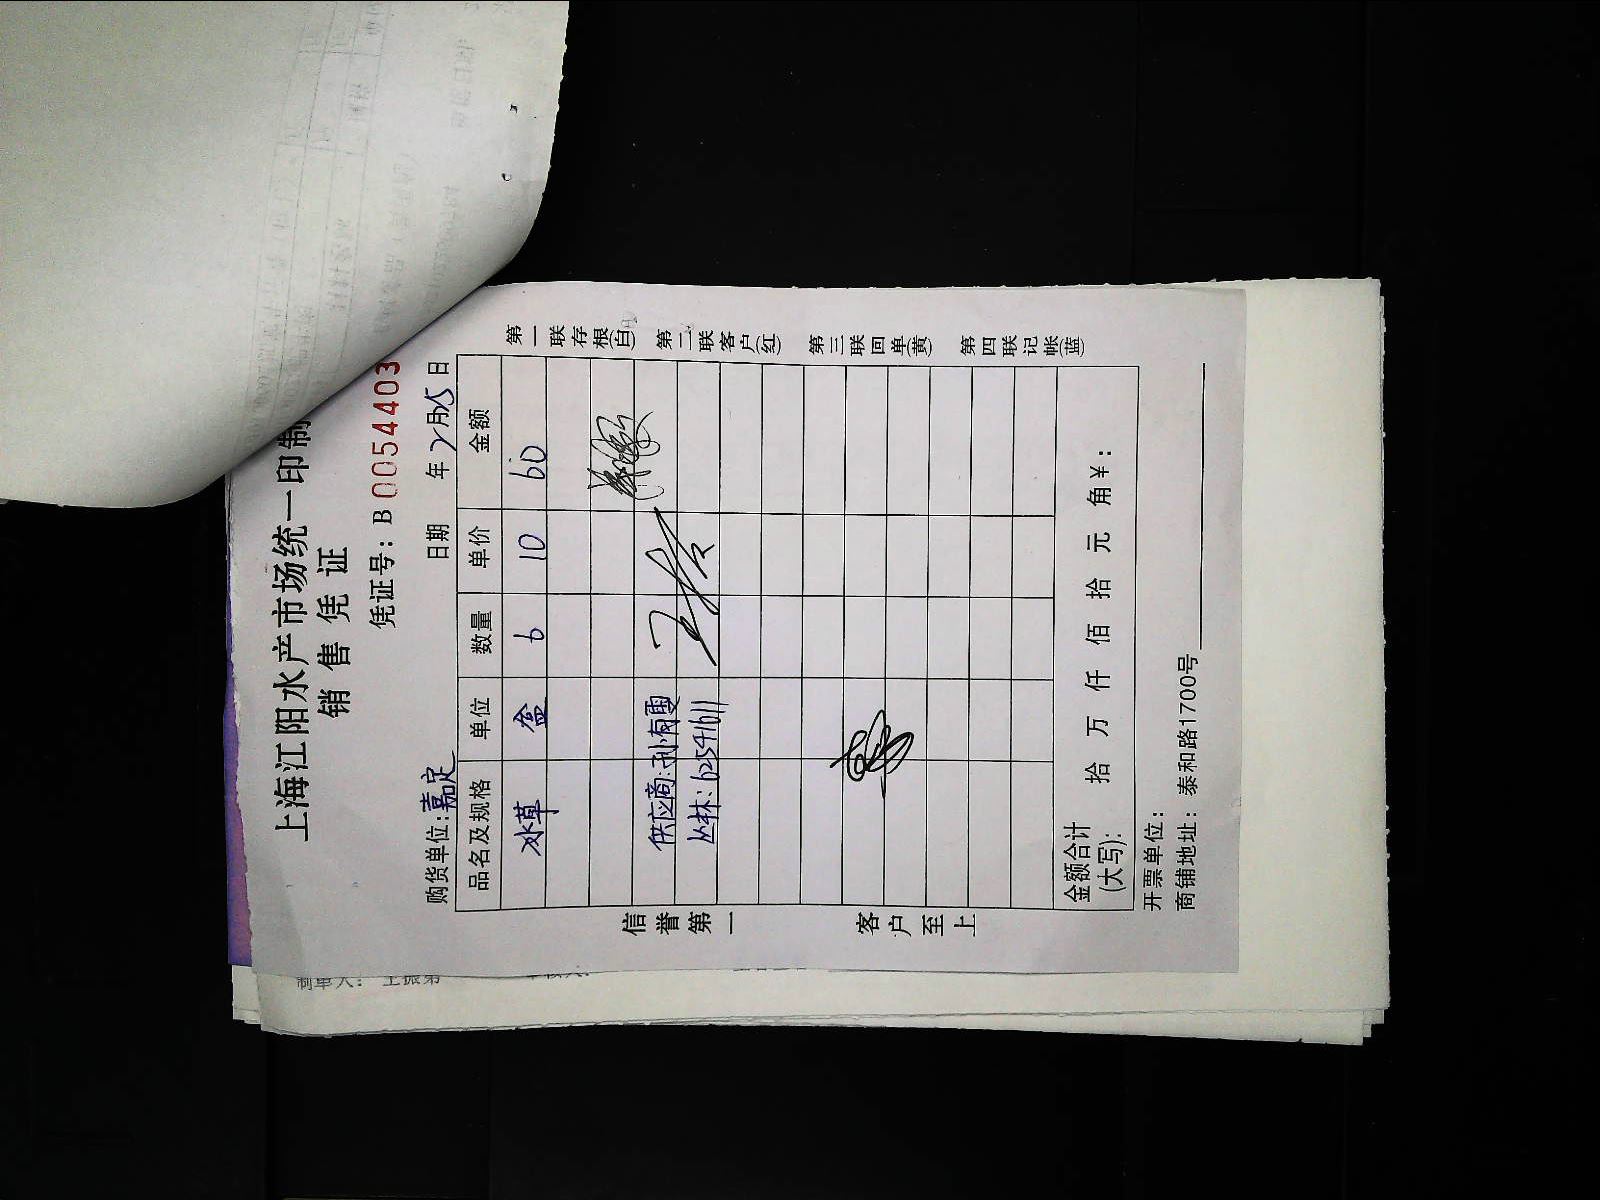 上海江阳水产市场统一印制
销 售 凭 证
凭证号：B 0054403
购货单位:嘉定 日期 年 2月25日
品名及规格 单位 数量 单价 金额
冰草 盒 6 10 60
供应商:孙有雯
丛林:62541611
金额合计
(大写): 拾 万 仟 佰 拾 元 角¥:
开票单位:
商铺地址: 泰和路1700号
信誉第一
客户至上
第一联存根(白)
第二联客户(红)
第三联回单(黄)
第四联记帐(蓝)
制单人: 王振第